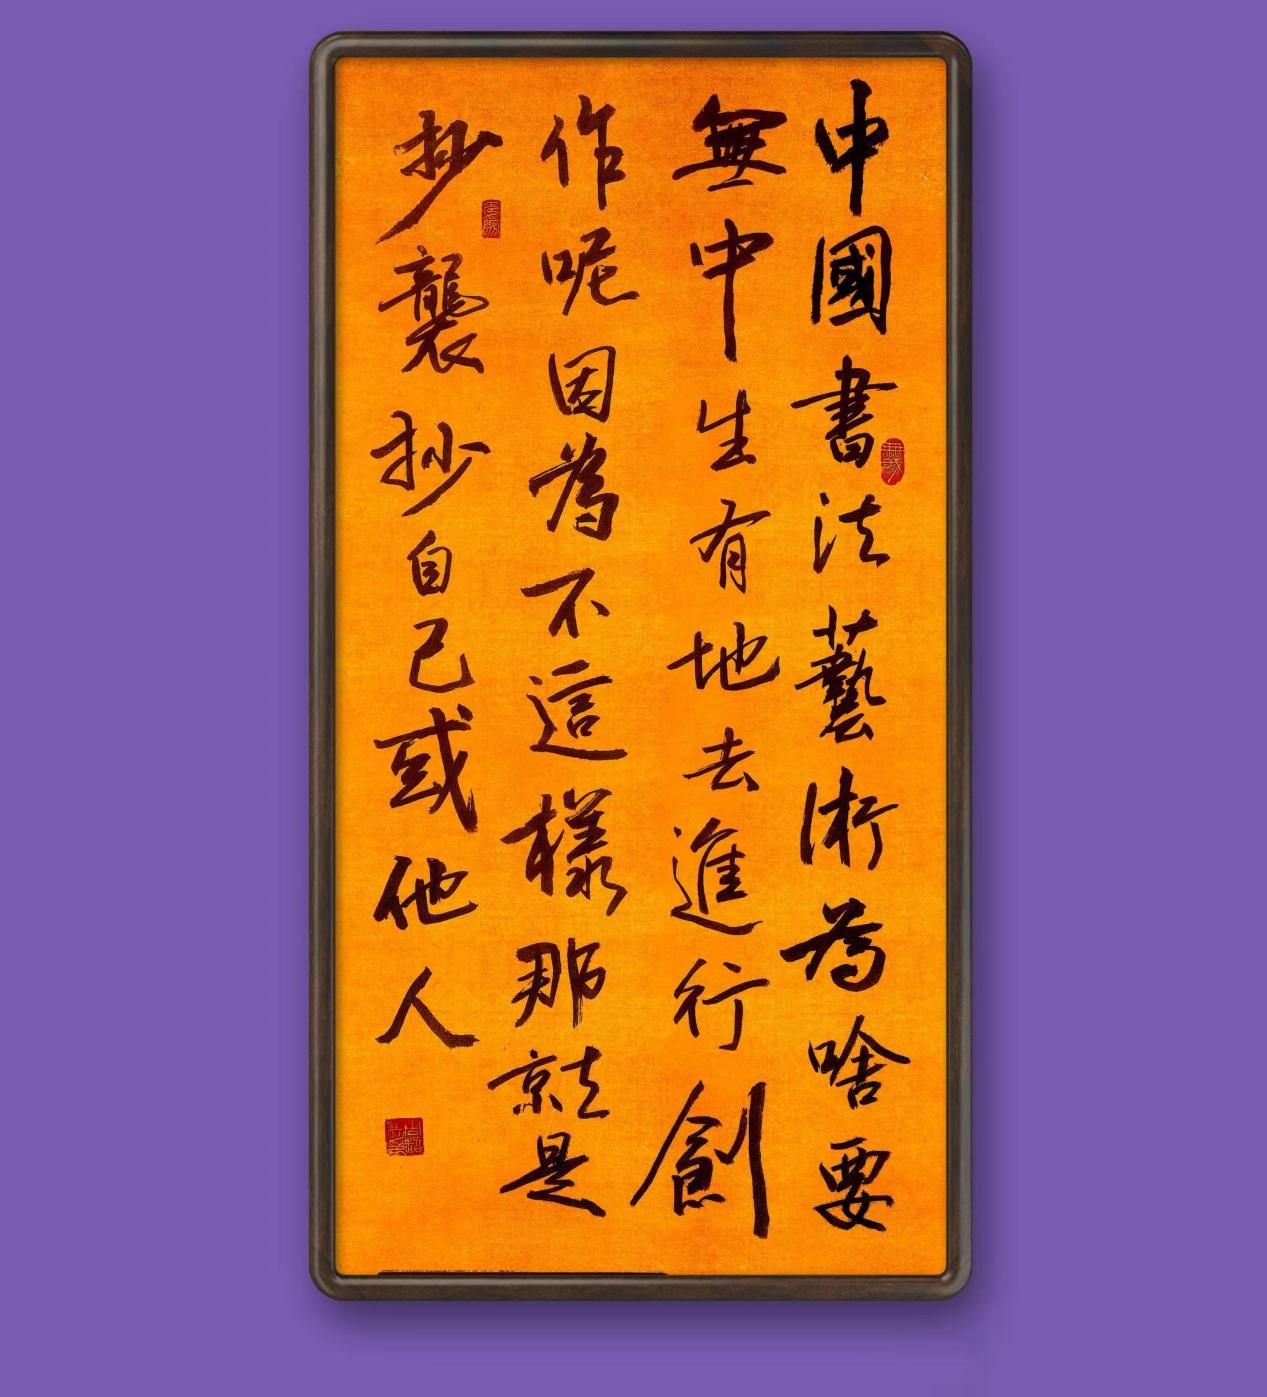 中國書法藝術為啥要
無中生有地去進行創
作呢因為不這樣那就是
抄襲抄自己或他人